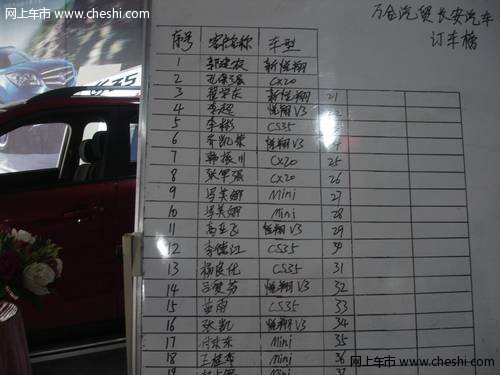 网上车市 www.cheshi.com
万合汽贸长安汽车
订车榜
序号 客户名称 车型
1 郭建农 新悦翔
2 CX20
3 新悦翔 21
4 李超 悦翔V3
5 李彬 CS35
6 齐凯荣 悦翔V3
7 韩振川 CX20 25
8 张军强 CX20 26
9 冯美娜 Mini 27
10 冯美娜 Mini 28
11 高亚飞 悦翔V3 29
12 李德江 CS35 30
13 杨良化 CS35 31
14 悦翔V3 32
15 苗雨 CS35 33
16 张凯 悦翔V3 34
17 Mini 35
18 Mini 36
19 Mini 37
网上车市 www.cheshi.com